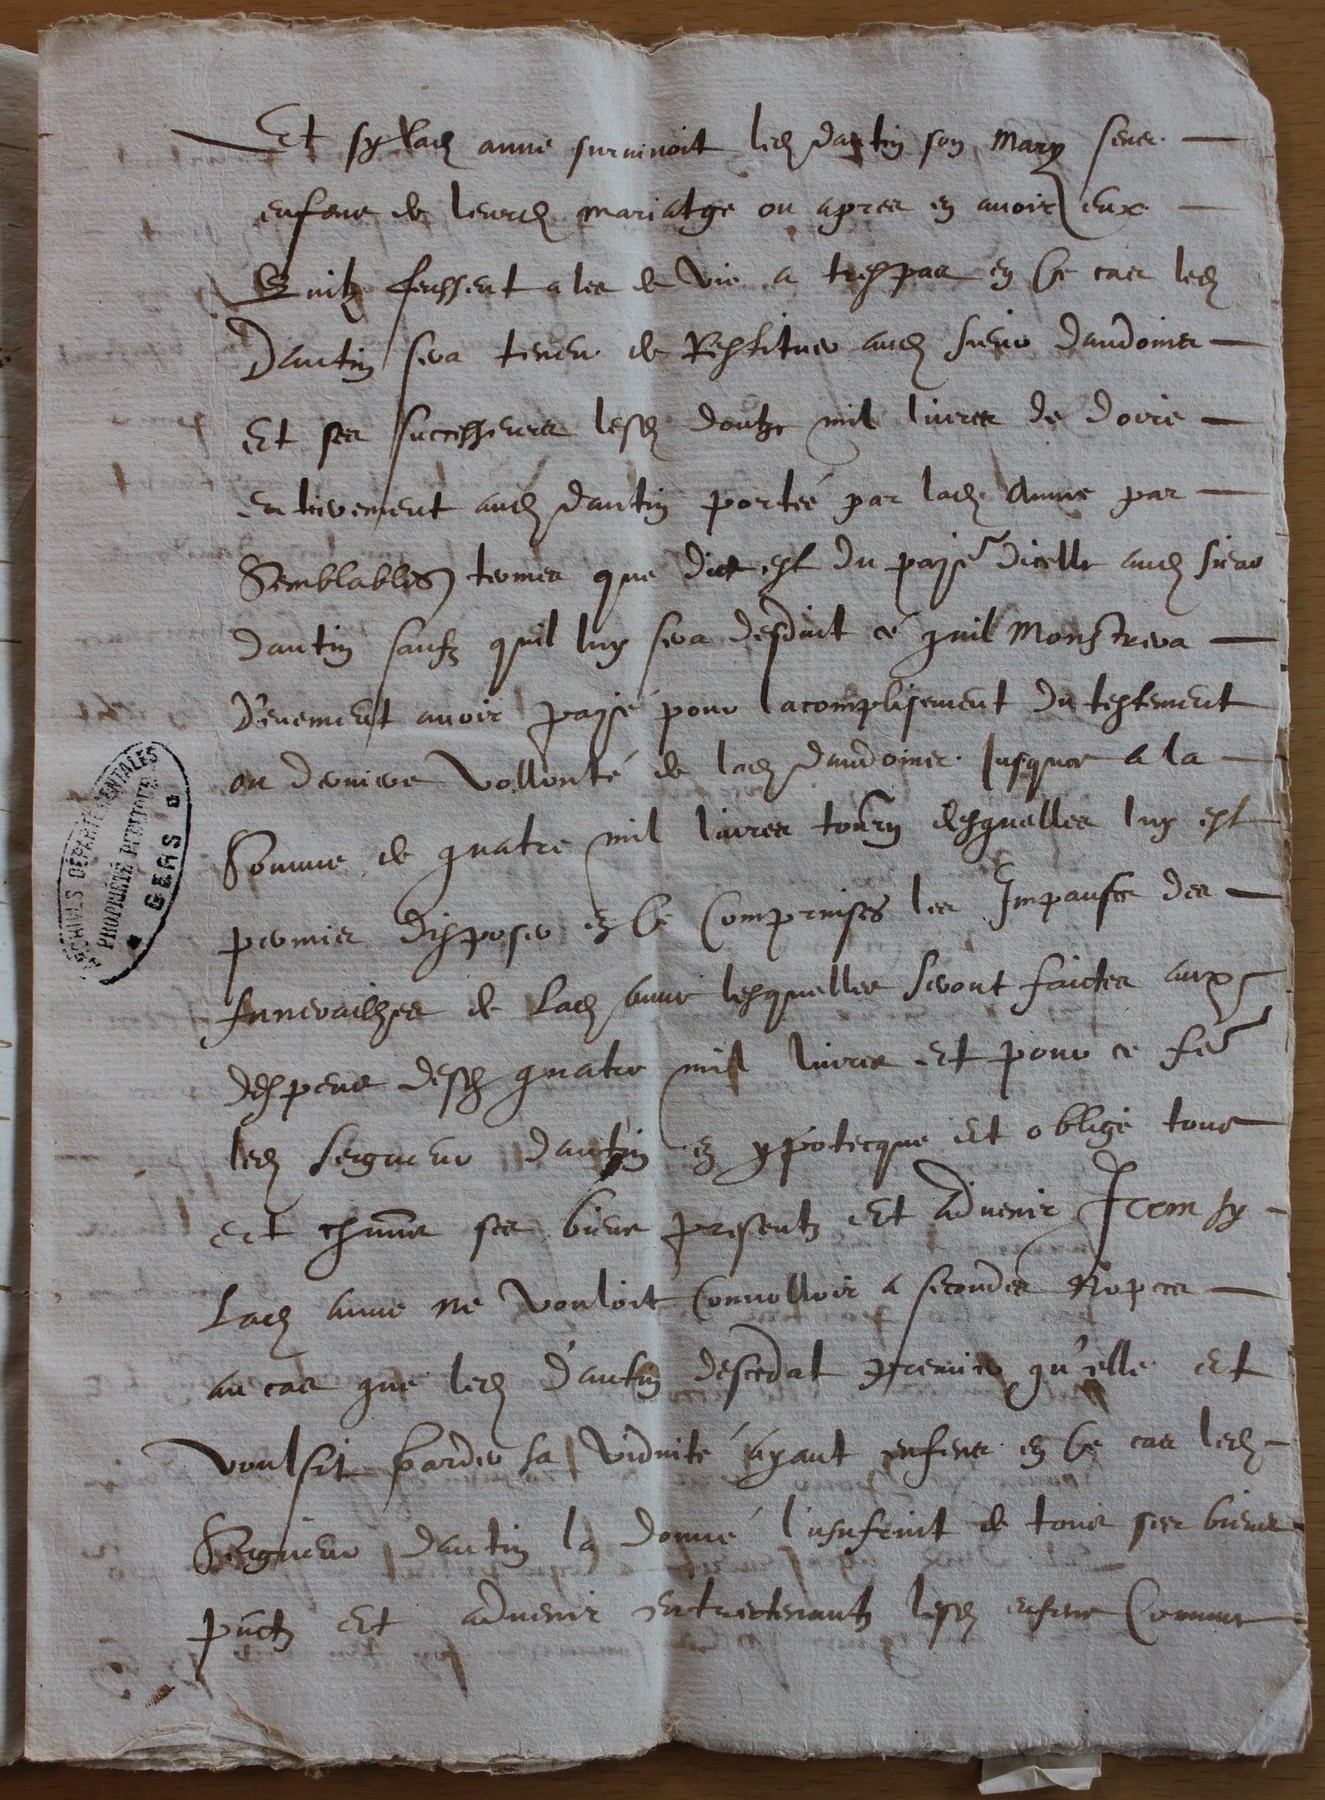 Et sy lad anne survivoit led dantin son mary sens
enfens de leurd mariatge ou apres en avoir eux
quilz feussent ales de vie a trespas en ce cas led
Dantin sera tenu de Restituer aud sieur dandoins
Et ses successeurs lesd doutze mil livres de doire
entierement aud dantin portée par lad Anne par
Semblables termes que dict est du paje dicelle aud sieur
dantin saufz quil luy sera desduit cé quil Monstrera
d'euement avoir pajsé pour lacomplisement du testement
ou derniere vollonté de lad dandoins Jusques a la
Somme de quatre mil livres tourn desquelles luy est
permis disposer en ce Comprinses les Impanses des
funerailhes de Lad anne lesquelles seront faictes aux
despens desd quatre mil livres Et pour ce fe
led seigneur dantin en ypotecque Et obligé tous
Et chuns ses biens presentz Et advenir Item sy
Lad anne ne vouloit Convolloir a secondes Nopces
au cas que led D'antin descedat premier qu'elle Et
voulsit garder sa viduité áyant enfens en ce cas led
Seigneur dantin la donné l'usufruit de tous ses biens
pñtz Et advenir entrectenantz lesd enfens Comme
ARCHIVES DÉPARTEMENTALES
PROPRIÉTÉ PUBLIQUE
GERS